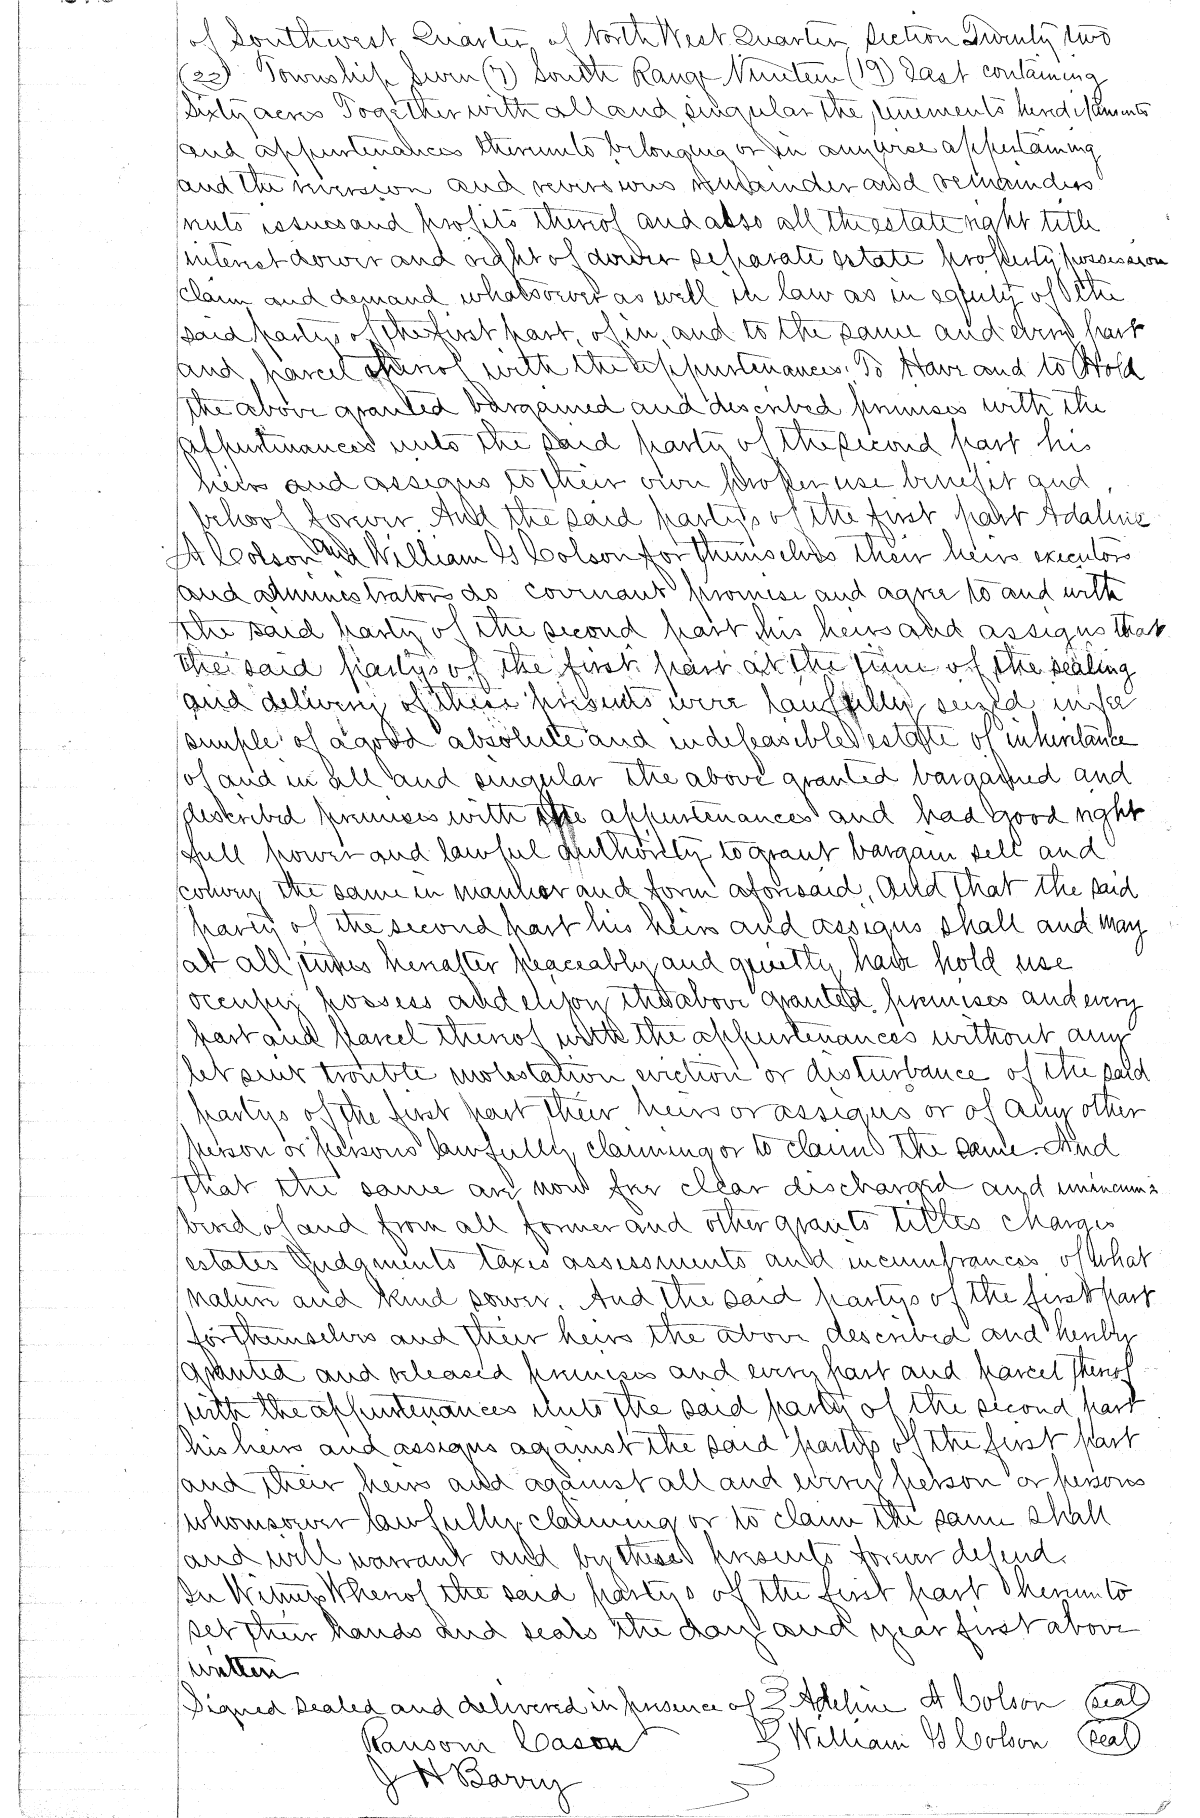 of Southwest Quarter of North West Quarter Section Twenty two
(22) Township Seven (7) South Range Nineteen (19) East containing
Sixty acres Together with all and singular the tenements hereditaments
and appurtenances thereunto belonging or in anywise appertaining
and the reversion and reversions remainder and remainders
rents issues and profits thereof and also all the estate right title
interest dower and right of dower separate estate property possession
claim and demand whatsoever as well in law as in equity of the
said partys of the first part, of in, and to the same and every part
and parcel thereof with the appurtenances. To Have and to Hold
the above granted bargained and described premises with the
appurtenances unto the said party of the second part his
heirs and assigns to their own proper use benefit and
behoof forever. And the said partys of the first part Adaline
A Colson and William G Colson for themselves their heirs executors
and administrators do covenant promise and agree to and with
the said party of the second part his heirs and assigns that
the said partys of the first part at the time of the sealing
and delivery of these presents were lawfully seized in fee
simple of a good absolute and indefeasible estate of inheritance
of and in all and singular the above granted bargained and
described premises with the appurtenances and had good right
full power and lawful authority to grant bargain sell and
convey the same in manner and form aforesaid, And that the said
party of the second part his heirs and assigns shall and may
at all times hereafter peaceably and quietly have hold use
occupy possess and enjoy the above granted premises and every
part and parcel thereof with the appurtenances without any
let suit trouble molestation eviction or disturbance of the said
partys of the first part their heirs or assigns or of any other
person or persons lawfully claiming or to claim the same. And
that the same are now free clear discharged and unincum=
bered of and from all former and other grants titles charges
estates Judgments taxes assessments and incumbrances of what
nature and kind soever. And the said partys of the first part
for themselves and their heirs the above described and hereby
granted and released premises and every part and parcel thereof
with the appurtenances unto the said party of the second part
his heirs and assigns against the said partys of the first part
and their heirs and against all and every person or persons
whomsoever lawfully claiming or to claim the same shall
and will warrant and by these presents forever defend.
In Witness Whereof the said partys of the first part hereunto
set their hands and seals the day and year first above
written
Signed sealed and delivered in presence of Adeline A Colson (seal)
Ransom Cason William G Colson (seal)
J H Barry